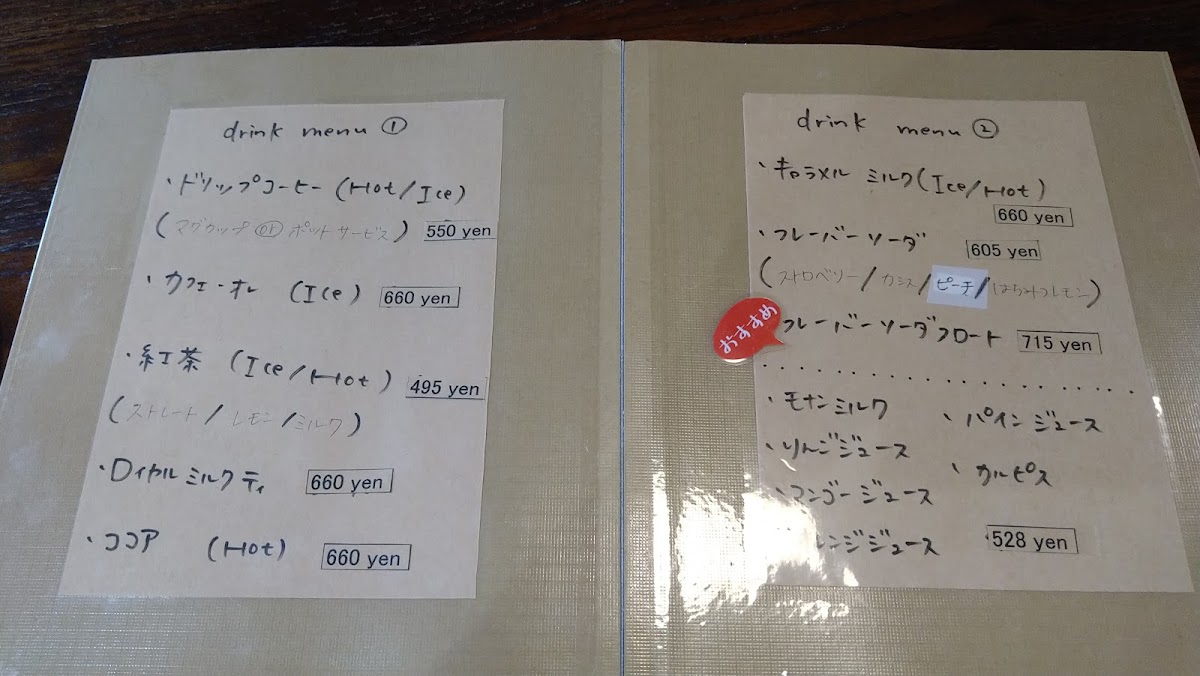 drink menu ①
・ドリップコーヒー (Hot/Ice)
(マグカップ or ポットサービス) 550 yen
・カフェ・オレ (Ice) 660 yen
・紅茶 (Ice/Hot) 495 yen
(ストレート/レモン/ミルク)
・ロイヤルミルクティ 660 yen
・ココア (Hot) 660 yen
drink menu ②
・キャラメルミルク(Ice/Hot)
660 yen
・フレーバーソーダ 605 yen
(ストロベリー/カシス/ピーチ/はちみつレモン)
おすすめ
フレーバーソーダフロート 715 yen
・モナンミルク ・パインジュース
・りんごジュース
・カルピス
・マンゴージュース
レンジジュース 528 yen